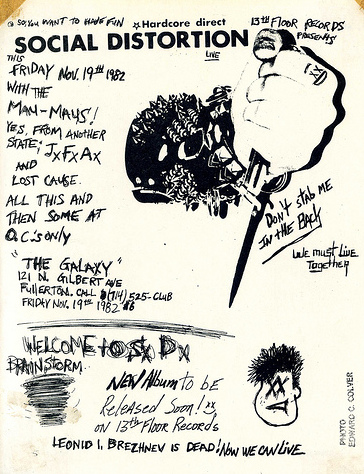 SO, YOU WANT TO HAVE FUN ☆Hardcore direct 13th FLOOR RECORDS PRESENTS
SOCIAL DISTORTION
LIVE
THIS
FRIDAY NOV. 19th 1982
WITH THE
MAU-MAUS!
YES, FROM ANOTHER
STATE; JxFxAx
AND
LOST CAUSE.
ALL THIS AND
THEN SOME AT
O.C.'s ONLY
"THE GALAXY"
121 N. GILBERT AVE
FULLERTON. CALL (714) 525-CLUB
FRIDAY NOV. 19th 1982
DON'T STAB ME
IN THE BACK
WE MUST LIVE
TOGETHER
WELCOME TO
BRAINSTORM.
NEW Album to be
Released Soon!
on 13th Floor Records
LEONID I. BREZHNEV IS DEAD! NOW WE CAN LIVE
PHOTO
EDWARD C. COLVER